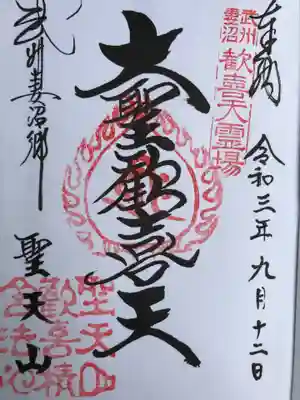 奉拝
武州
妻沼
歓喜天霊場
令和三年九月十二日
大聖歓喜天
武州妻沼郷
聖天山